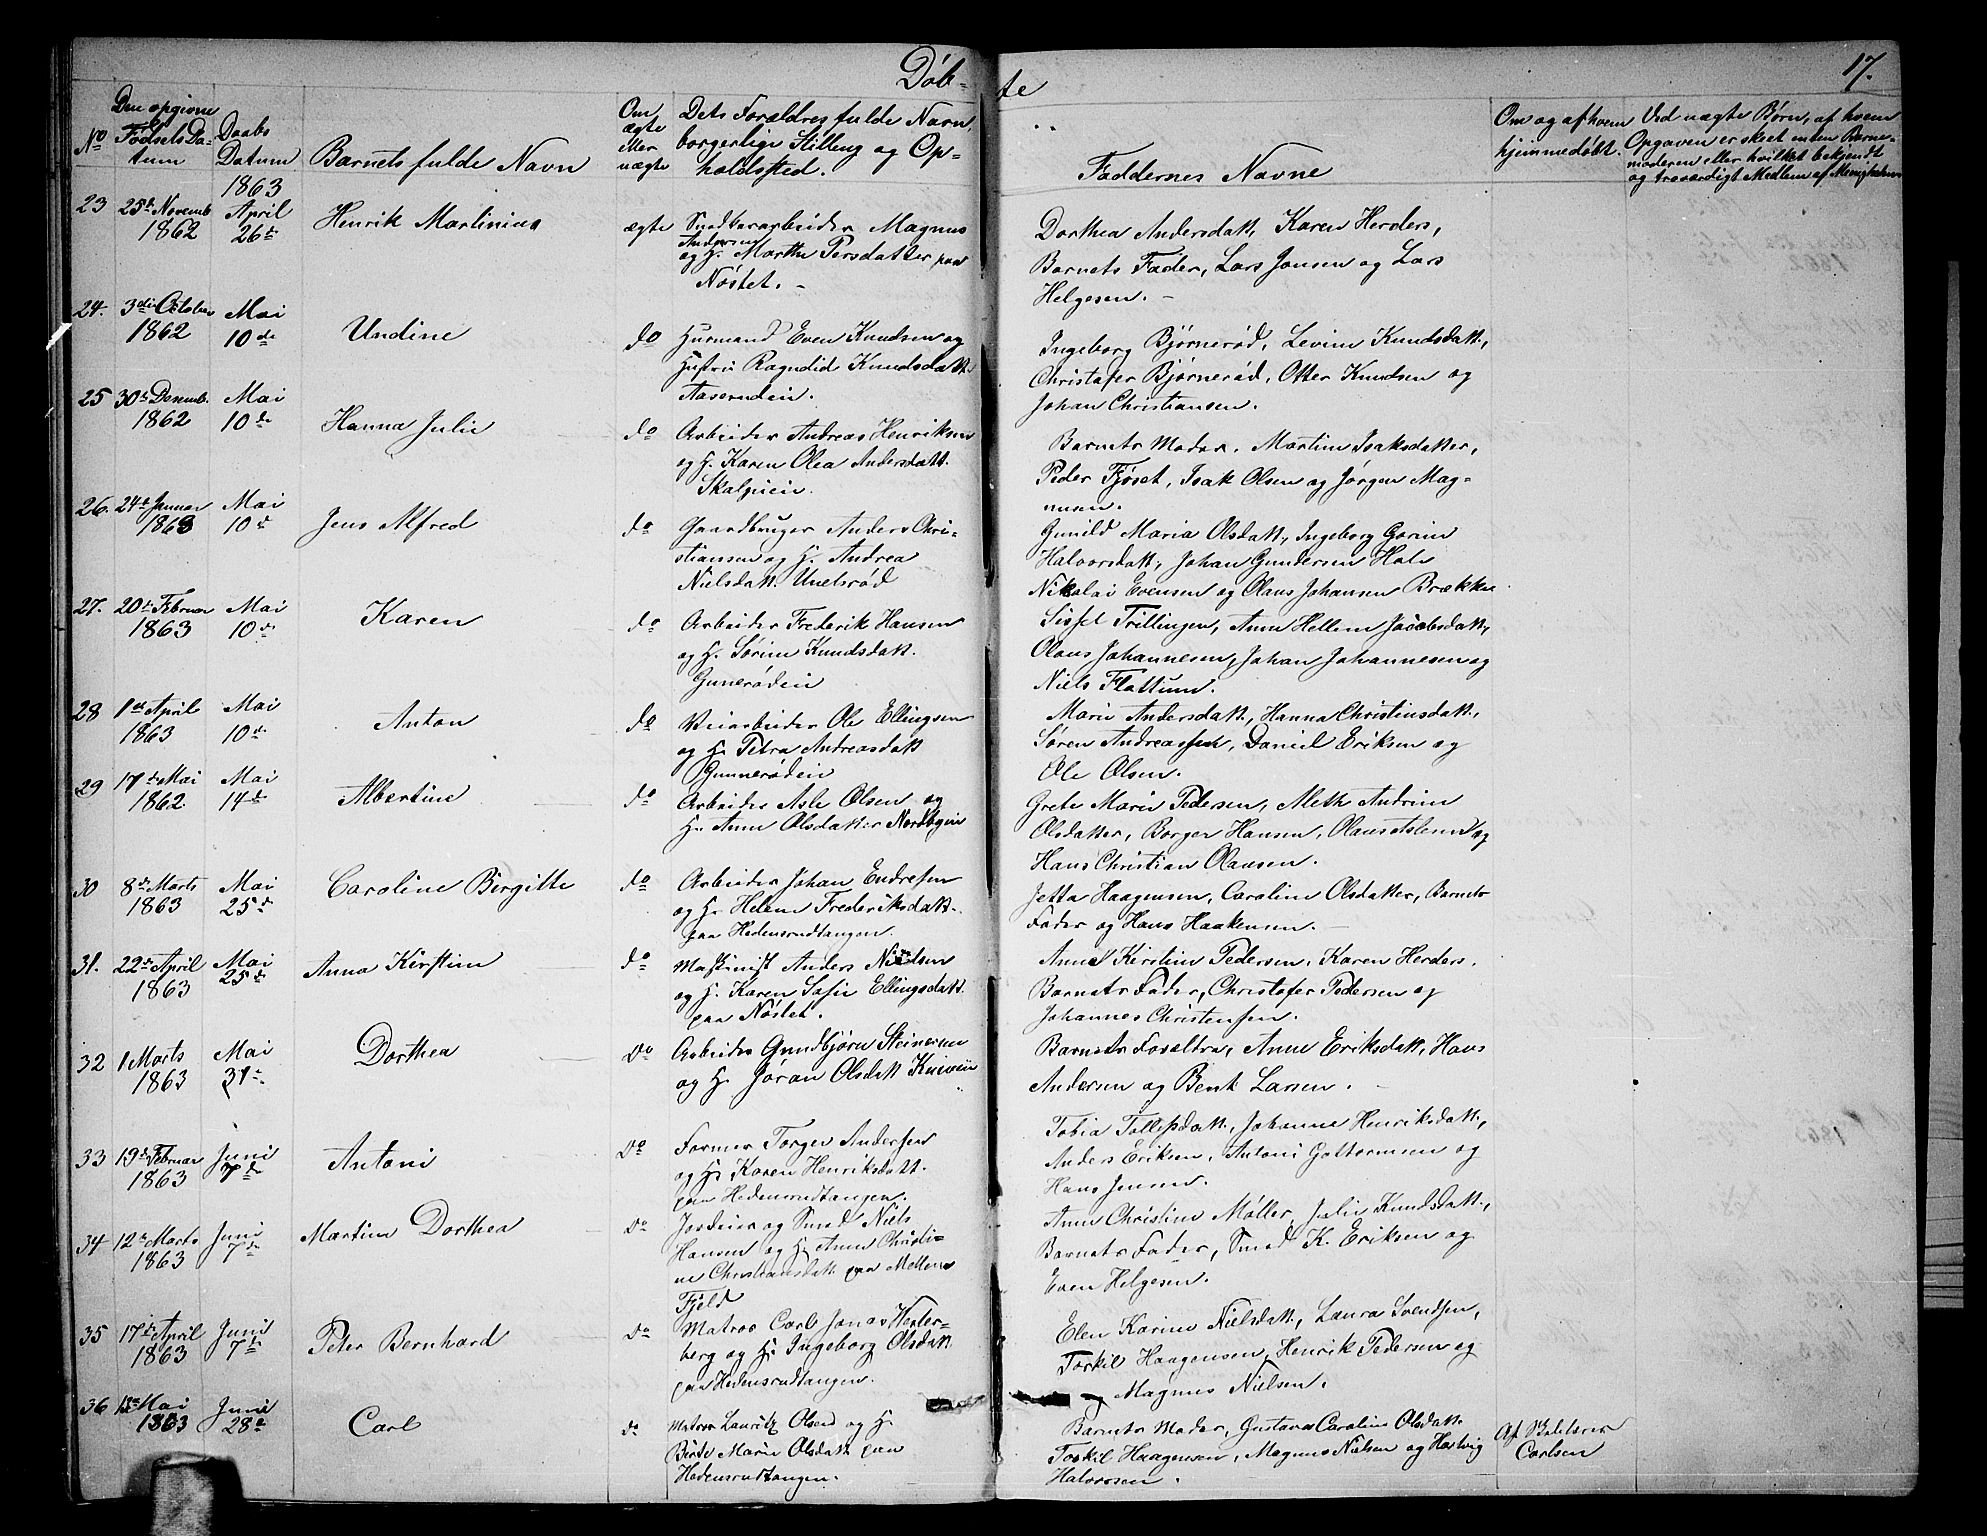 Døb-
te
17.
No
Den opgivne
Fødsels Da-
tum
Daabs
Datum
Barnets fulde Navn
Om
ægte
eller
uægte
Dets Forældres fulde Navn,
borgerlige Stilling og Op-
holdssted.
Faddernes Navne
Om og af hvem
hjemmedøbt.
Ved uægte Børn, af hvem
Opgaven er skeet enten Barne-
moderen eller hvilket bekjendt
og troværdigt Medlem af Menigheden
23
25de Novemb
1862
1863
April
26de
Henrik Martinius
ægte
Magnus
Andersen
og H. Marthe Persdatter paa
Nøstet. -
Dorthea Andersdatt, Karen Herders,
Barnets Fader, Lars Jensen og Lars
Helgesen. -
24.
3die October
1862
Mai
10de
Undine
do
Huusmand Even Knudsen og
Hustru Ragndid Knudsdatt
Aaserudeie.
Ingeborg Bjørnerød, Levine Knudsdatt.,
Christofer Bjørnerød, Otter Knudsen og
Johan Christiansen.
25
30de Desemb.
1862
Mai
10de
Hanna Julie
do
Arbeider Andreas Henriksen
og H. Karen Olea Andersdatt.
Barnets Moder, Martine Isaksdatter,
Peder Fjøset, Isak Olsen og Jørgen Mag-
nusen.
26.
24de Januar
1863
Mai
10de
Jens Alfred
do
Gaardbruger Anders Chri-
stiansen og H. Andrea
Nielsdatt
Gunild Maria Olsdatt., Ingeborg Gorine
Halvorsdatt., Johan Gundersen Hals
Nikolai Evensen og Olaus Johansen Brække
27.
20de Februar
1863
Mai
10de
Karen
do
Arbeider Frederik Hansen
og H. Sørine Knudsdatt.
Gunerødeie
Sissel Trillingen, Anne Hellene Jacobsdatt,
Olaus Johannesen, Johan Johannesen og
Niels Flattum.
28
1ste April
1863
Mai
10de
Anton
do
Veiarbeider Ole Ellingsen
og H. Petra Andreasdatt
Gunnerødeie
Marie Andersdatt., Hanna Christiansdatt.,
Søren Andreassen, Daniel Eriksen og
Ole Olsen.
29
17de Mai
1862.
Mai
14de
Albertine
do
Arbeider Asle Olsen og
H. Anne Olsdatter Nordbyeie
Grete Marie Pedersen, Methe Andrine
Olsdatter, Borger Hansen, Olaus Aslesen og
Hans Christian Olausen.
30
8de Marts
1863
Mai
25de
Caroline Birgitte
do
Arbeider Johan Endresen
og H. Helene Frederiksdatt.
paa Hedensrudtangen.
Jetta Haagensen, Caroline Olsdatter, Barnets
Fader og Hans Haakensen. -
31.
22de April
1863
Mai
25de
Anna Kirstine
do
Maskinist Anders Nielsen
og H. Karen Sofie Ellingsdatt.
paa Nøstet.
Anne Kirstine Pedersen, Karen Herders.
Barnets Fader, Christofer Pedersen og
Johannes Christensen.
32
1 Marts
1863
Mai
31te
Dorthea
do
Arbeider Gundbjørn Steinersen
og H. Jøran Olsdatt Kniveie
Barnets Forældre, Anne Eriksdatt, Hans
Andersen og Bent Larsen.
33
19de Februar
1863
Juni
7de
Antoni
do
Former Torger Andersen
og H. Karen Henriksdatt.
paa Hedensrudtangen.
Tobia Tollefsdatt., Johanne Henriksdatt.,
Anders Eriksen, Antoni Guttormsen og
Hans Jensen.
34
12te Marts
1863
Juni
7de
Martine Dorthea
do
Jordeier og Smed Niels
Hansen og H. Anne Christi-
ne Christiansdatt paa Mellem
Fjeld
Anne Christine Møller, Julie Knudsdatt.,
Barnets Fader, Smed K. Eriksen og
Even Helgesen.
35
17de April
1863
Juni
7de
Peter Bernhard
do
Matros Carl Jonas Wester-
berg og H. Ingeborg Olsdatt
paa Hedensrudtangen.
Elen Karine Nielsdatt, Laura Svendsen,
Torkil Haagensen, Henrik Pedersen og
Magnus Nielsen.
36
13de Mai
1863
Juni
28de
Carl
do
Matros Lauritz Olsen og H.
Berte Marie Olsdatt paa
Hedensrudtangen.
Barnets Moder, Gustava Caroline Olsdatt.
Torkil Haagensen, Magnus Nielsen og Hartvig
Halvorsen.
Af
Carlsen